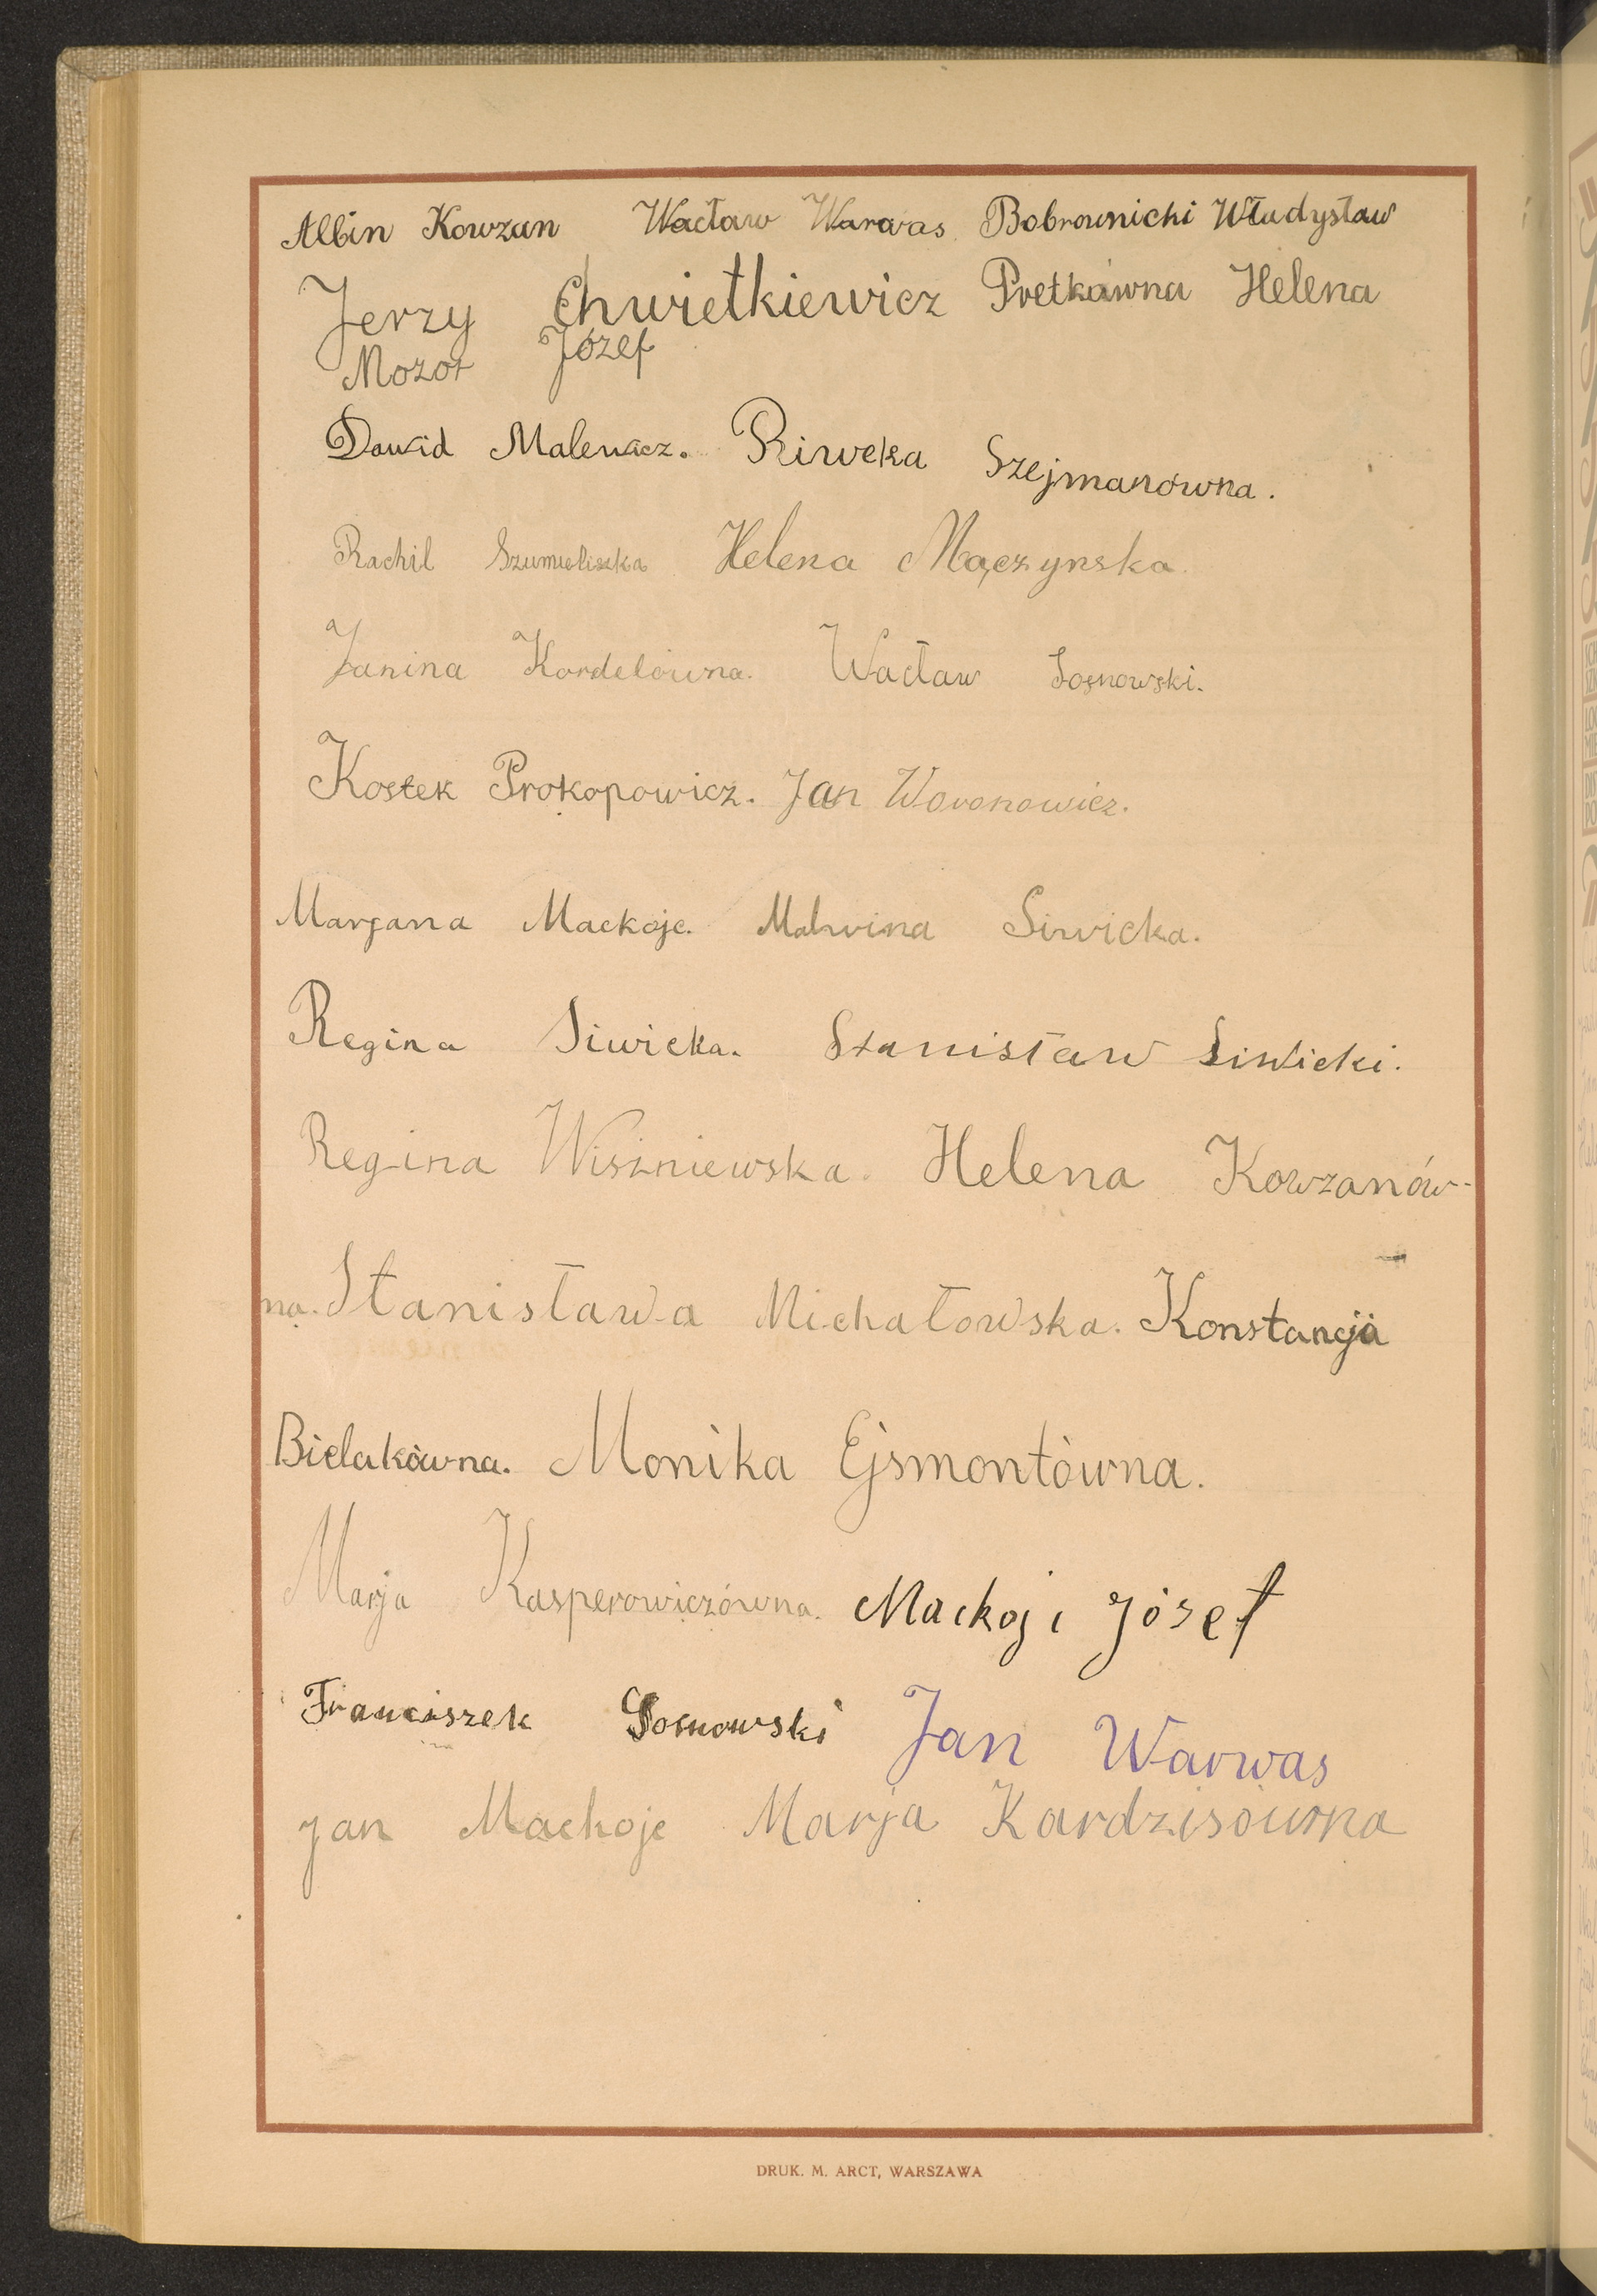 Albin Kowzan Wacław Warwas Bobrownicki Władysław
Jerzy Chwietkiewicz Pretkówna Helena
Mozoł Józef
Dawid Malewicz. Riweka Szejmanówna.
Rachil Szumieliszka Helena Mączynska.
Janina Kordelówna. Wacław Sosnowski.
Kostek Prokopowicz. Jan Woronowicz.
Marjana Mackoje. Malwina Siwicka.
Regina Siwicka. Stanisław Siwicki.
Regina Wiszniewska. Helena Kowzanów-
na. Stanisława Michałowska. Konstancja
Bielakówna. Monika Ejsmontówna.
Marja Kasperowiczówna. Mackoji Józef
Franciszek Sosnowski Jan Warwas
Jan Mackoje Marja Kardzisówna
DRUK. M. ARCT, WARSZAWA